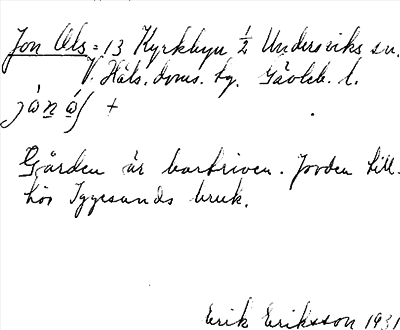 Jon Ols = 13 Kyrkbyn 1/2 Undersviks sn.
V. Häls. doms. tg. Gävleb. l.
jò̀nó̱ʃ +
Gården är bortriven. Jorden till-
hör Iggesunds bruk.
Erik Eriksson 1931